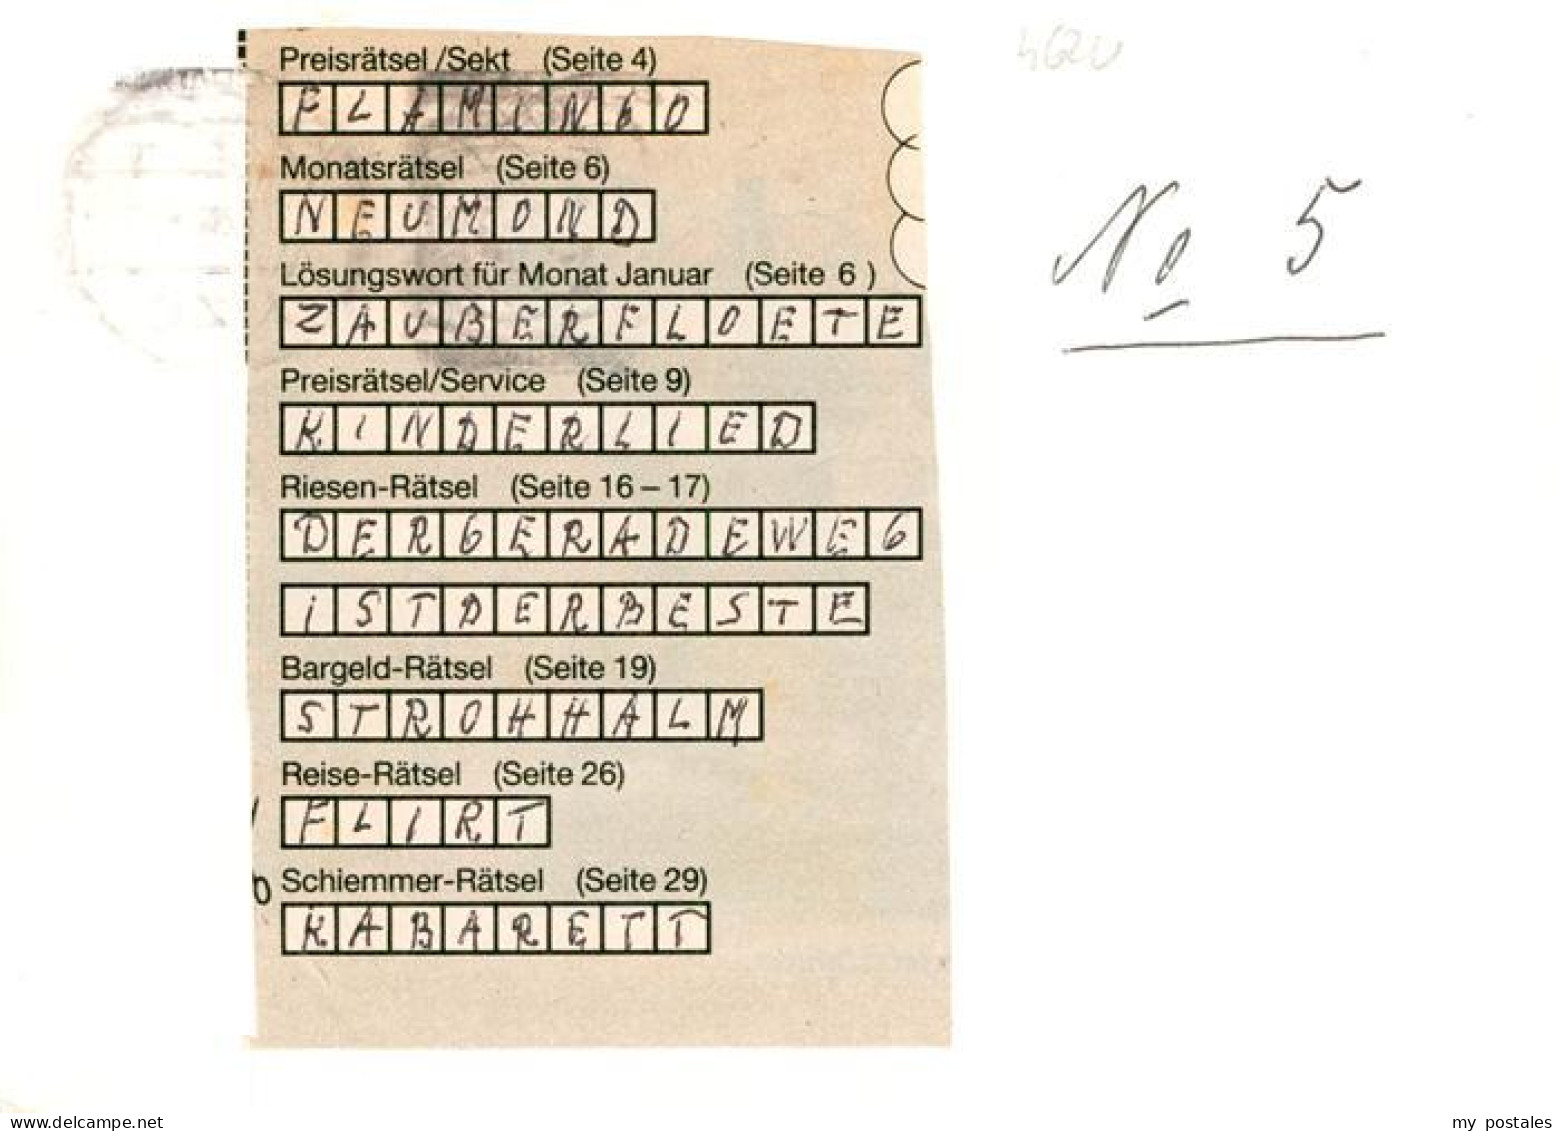 Preisrätsel /Sekt (Seite 4)
FLAMINGO
Monatsrätsel (Seite 6)
NEUMOND
Lösungswort für Monat Januar (Seite 6 )
ZAUBERFLOETE
Preisrätsel/Service (Seite 9)
KINDERLIED
Riesen-Rätsel (Seite 16 – 17)
DERGERADEWEG
ISTDERBESTE
Bargeld-Rätsel (Seite 19)
STROHHALM
Reise-Rätsel (Seite 26)
FLIRT
Schiemmer-Rätsel (Seite 29)
KABARETT
No 5
www.delcampe.net
my_postales